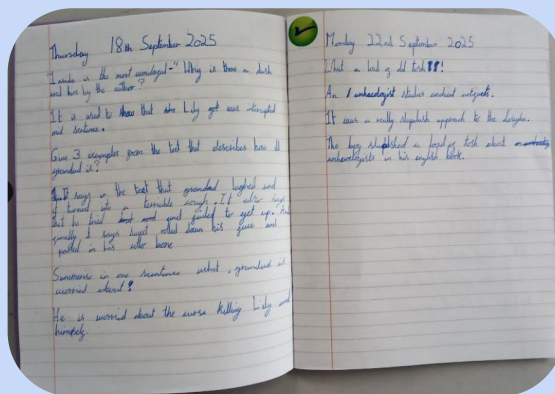 Thursday 18th September 2025
"Inside is the most wonderful-" Why is there a dash
used here by the author?
It is used to show that she Lily got was interrupted
mid sentence.
Give 3 examples from the text that describes how ill
grandad is?
It says in the text that grandad laughed and
it turned into a terrible cough. It also says
that he tried and failed to get up. And
finally it says sweat rolled down his face and
pooled in his collar bone
Summarise in one sentence what grandad is
worried about?
He is worried about the curse killing Lily and
himself.
Monday 22nd September 2025
What a load of old tosh!!!
An archaeologist studies ancient artifacts.
It was a really slapdash approach to the
The boy slapdashed a load of tosh about
archaeologists in his english book.